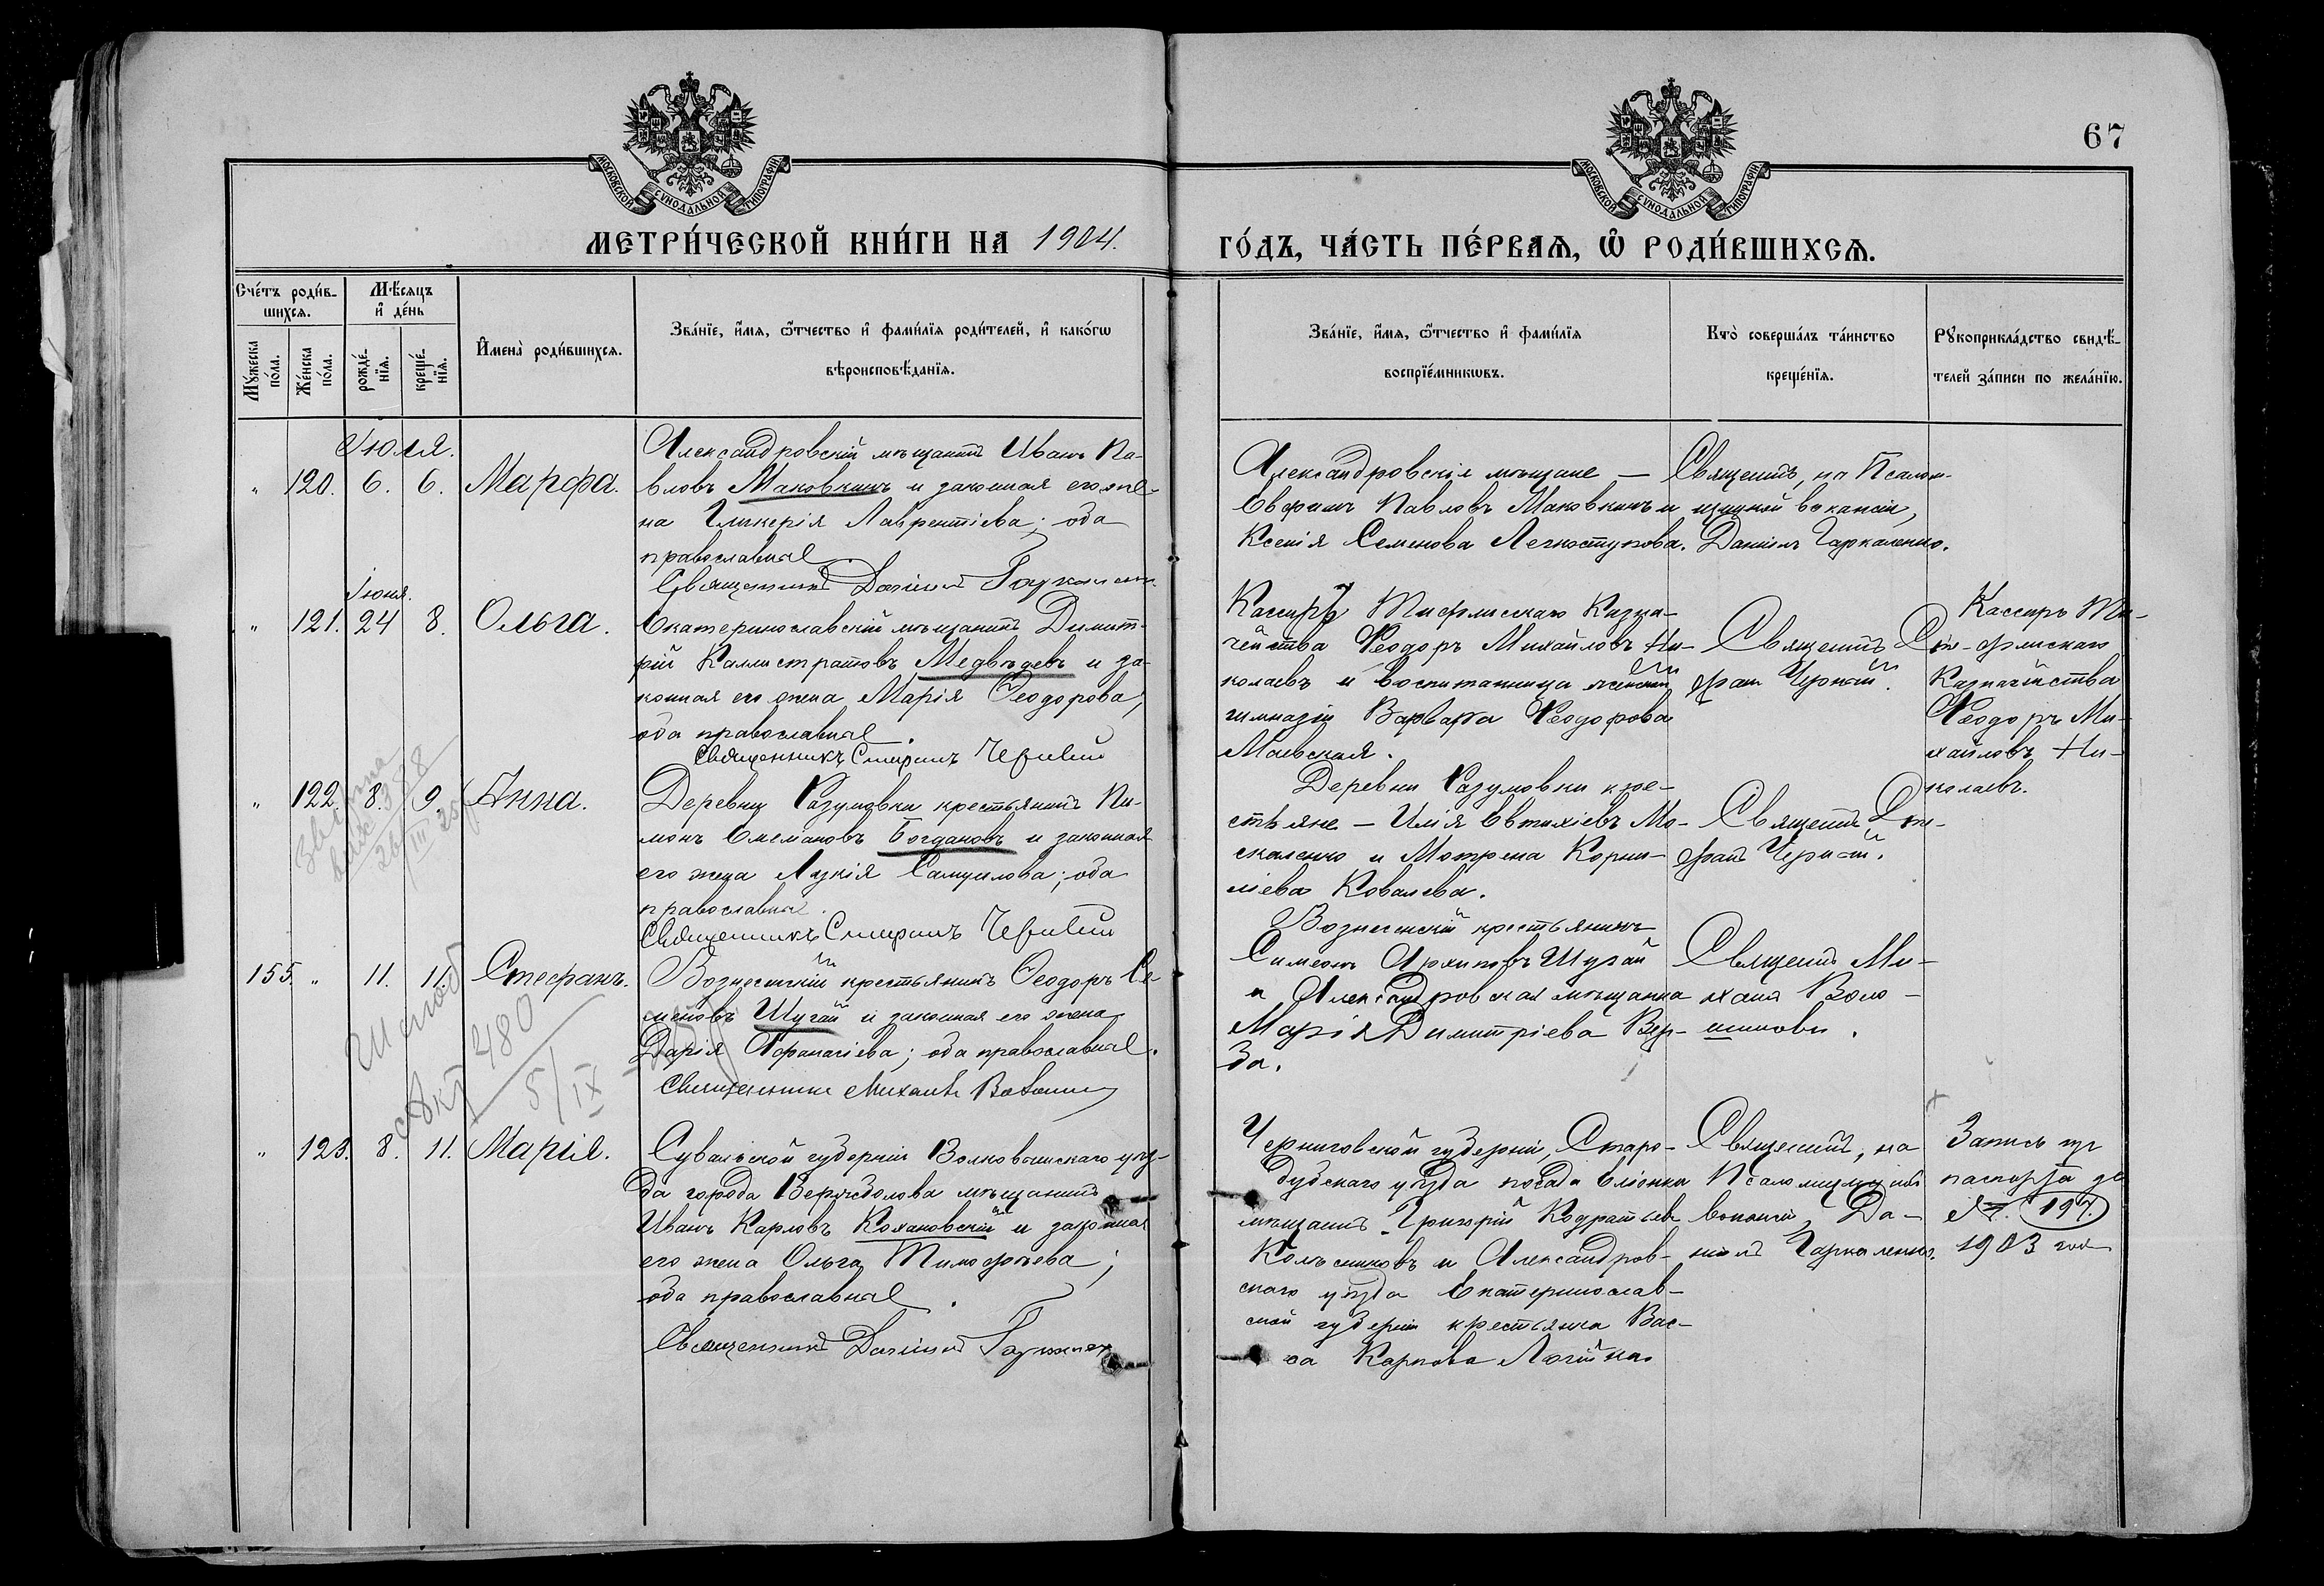 67
МОСКОВСКОЙ СѴНОДАЛЬНОЙ ТИПОГРАФІИ
МОСКОВСКОЙ СѴНОДАЛЬНОЙ ТИПОГРАФІИ
МЕТРИ́ЧЕСКОЙ КНИ́ГИ НА 1904.
ГО́ДЪ, ЧА́СТЬ ПЕ́РВАѦ, Ѡ РОДИ́ВШИХСѦ.
Сче́тъ роди́в-
шихсѧ.
Мꙋ́жеска по́ла.
Же́нска по́ла.
Мѣ́сѧцъ
и҆ де́нь
рожде́-нїѧ.
креще́-нїѧ.
И҆мена̀ роди́вшихсѧ.
Зва́нїе, и҆́мѧ, ѻ҆́тчество и҆ фами́лїѧ роди́телей, и҆ како́гѡ
вѣроисповѣ́данїѧ.
Зва́нїе, и҆́мѧ, ѻ҆́тчество и҆ фами́лїѧ
воспрїе́мникѡвъ.
Кто̀ соверша́лъ та́инство
креще́нїѧ.
Рꙋкоприкла́дство свидѣ́-
телей за́писи по жела́нїю.
Іюля.
" 120. 6. 6. Марфа.
Александровскій мѣщанинъ Иванъ Па-
вловъ Маковкинъ и законная его же-
на Гликерія Лаврентіева; оба
православные
Священникъ Даніилъ
Александровскіе мѣщане —
Евфимъ Павловъ Маковкинъ и
Ксенія Семенова Легкоступова.
Священникъ, на Псалом-
щицкой вакансіи,
Даніилъ Гаркаленко.
Іюня.
" 121. 24 8. Ольга.
Екатеринославскій мѣщанинъ Димит-
рій Каллистратовъ Медвѣдевъ и за-
конная его жена Марія Ѳеодорова;
оба православные.
Священникъ Спиридонъ
Кассиръ Тифлисскаго Казна-
чейства Ѳеодоръ Михайловъ Ни-
колаевъ и воспитанница женской
гимназіи Варвара Ѳеодорова
Маевская.
Священникъ
Кассиръ Ти-
флисскаго
Казначейства
Ѳеодоръ Ми-
хайловъ Ни-
колаевъ.
" 122. 8. 9. Анна.
Деревни Разумовки крестьянинъ Пи-
монъ Богдановъ и законная
его жена Лукія Самуилова; оба
православные.
Священникъ
Деревни Разумовки кре-
стьяне — Илія Евтихіевъ Мо-
скаленко и Мотрона Корни-
ліева Ковалева.
Священникъ
155. " 11. 11. Стефанъ.
Вознесенскій крестьянинъ Ѳеодоръ Се-
меновъ Шугай и законная его жена
Дарія Аѳанасіева; оба православные.
Священникъ Михаилъ
Вознесенскій крестьянинъ
Симеонъ Архиповъ Шугай
и Александровская мѣщанка
Марія Димитріева Вер-
ба.
Священникъ Ми-
хаилъ
480
5/IX
" 123. 8. 11. Марія.
Сувалкской губерніи Волковышскаго уѣз-
да города Вержболова мѣщанинъ
Иванъ Карловъ Кохановскій и законная
его жена Ольга Тимофѣева;
оба православные.
Священникъ Даніилъ
Черниговской губерніи, Старо-
дубскаго уѣзда посада Еліонки
мѣщанинъ Григорій Кодратьевъ
Колѣсниковъ и Александров-
скаго уѣзда Екатеринослав-
ской губерніи крестьянка Вас-
са Карпова
Священникъ, на
Псаломщицкой
вакансіи, Да-
ніилъ Гаркаленко.
Запись
паспорта
№ 197.
1903 года